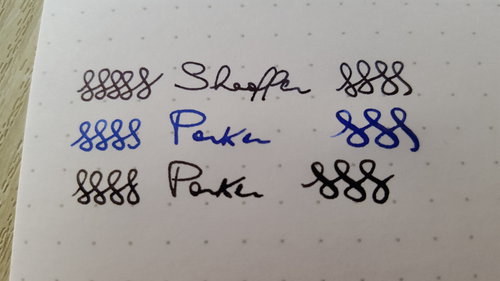 Sheaffer
Parker
Parker